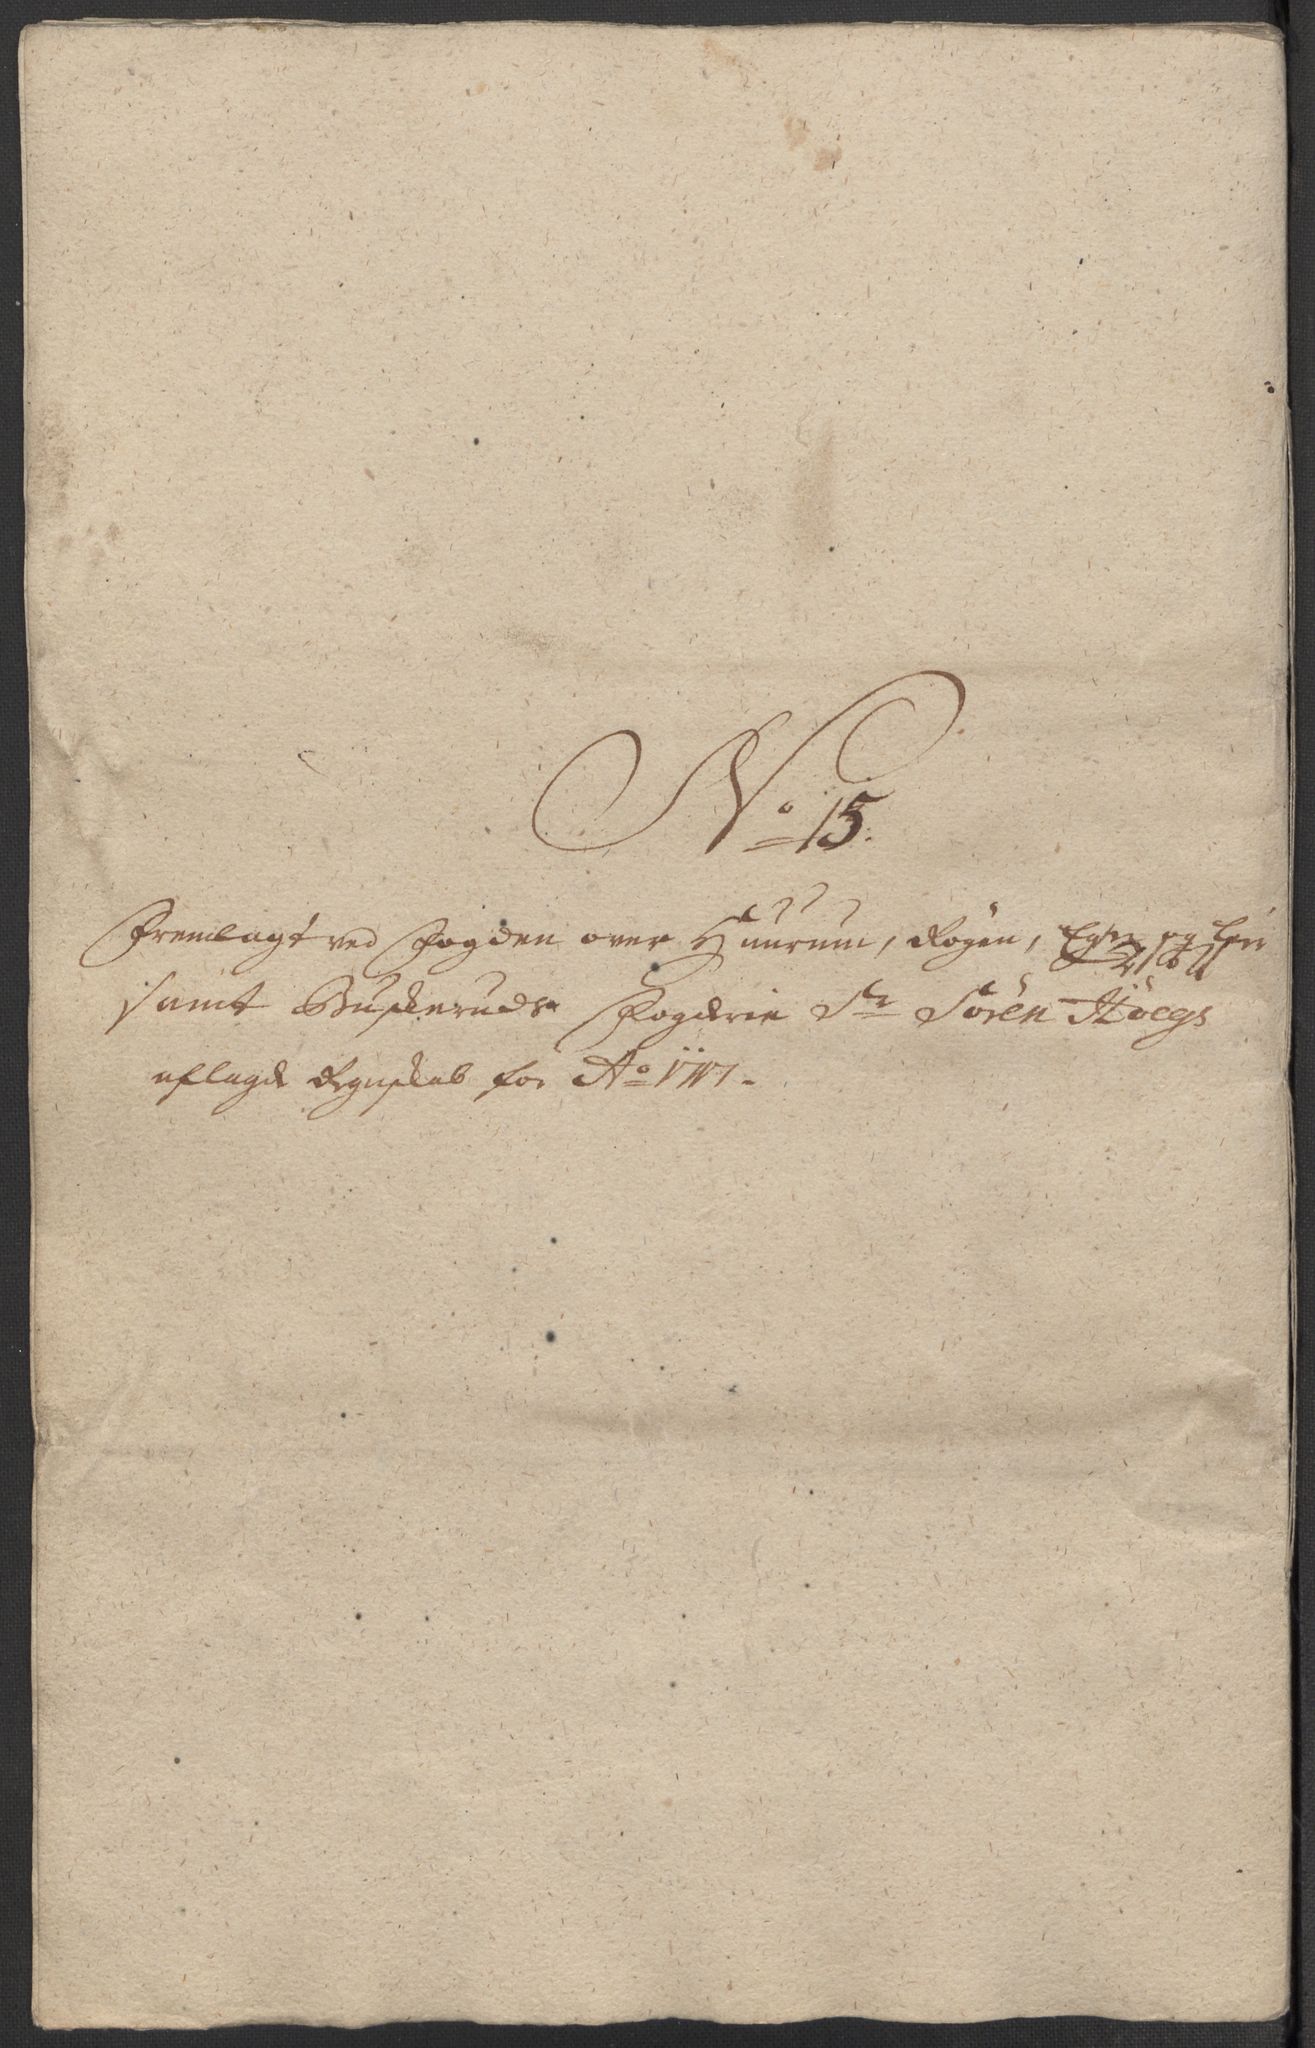 No 15.
Fremlagt ved Fogden over Huurum, Røgen, Eger og Lier
samt Buskeruds Fogderie Sr Sören Höegs
aflagde Regnskab for Ao 1717.